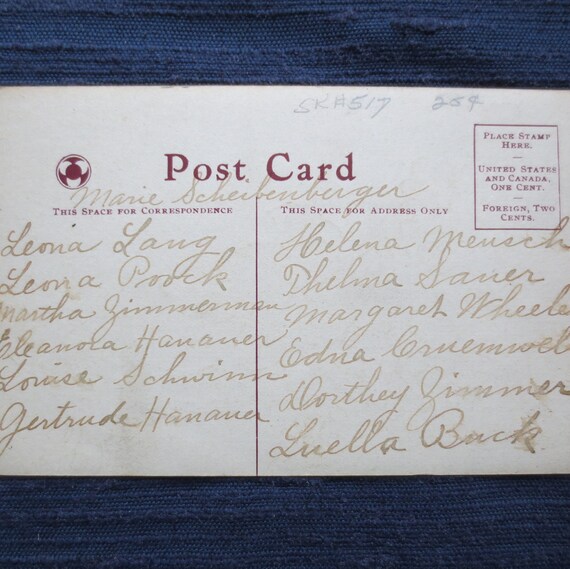 SK#517 25¢
Post Card
PLACE STAMP
HERE.
UNITED STATES
AND CANADA,
ONE CENT.
FOREIGN, TWO
CENTS.
Marie Scheibenberger
THIS SPACE FOR CORRESPONDENCE
THIS SPACE FOR ADDRESS ONLY
Leona Lang
Leona Poock
Martha Zimmerman
Eleanola Hanauer
Louise Schwinn
Gertrude Hanauer
Helena Mensch
Thelma Sauer
Margaret Wheele
Edna Cruemwel
Dorthey Zimmer
Luella Buck